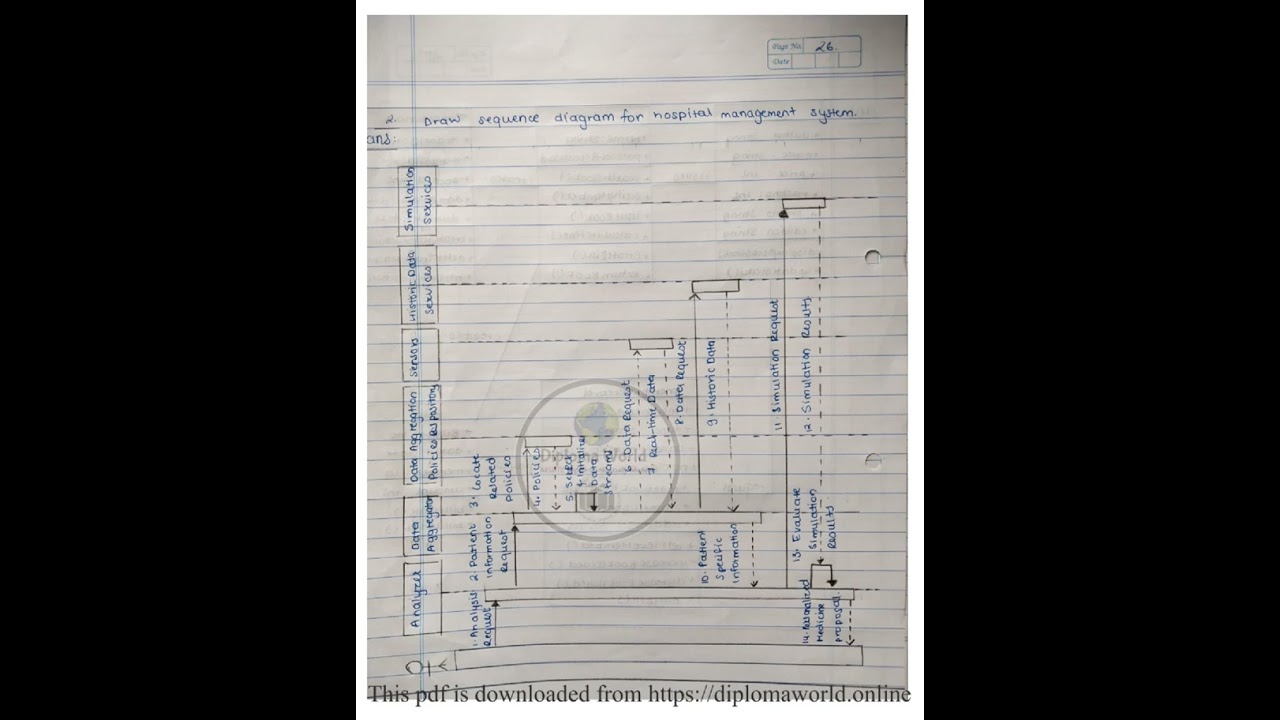 Page No. 26.
Date
2. Draw sequence diagram for hospital management system.
ans:
Simulation
Services
Historic Data
Services
Sensors
Data Aggregation
Policies Repository
Data
Aggregator
Analyzer
1. Analysis
Request
2. Patient
Information
Request
3. Locate
Related
Policies
4. Policies
5. Select
& Initialize
Data
Streams
6. Data Request
7. Real-time Data
8. Data Request
9. Historic Data
10. Patient
Specific
Information
11. Simulation Request
12. Simulation Results
13. Evaluate
Simulation
Results
14. Personalized
Medicine
proposal.
Diploma World
This pdf is downloaded from https://diplomaworld.online